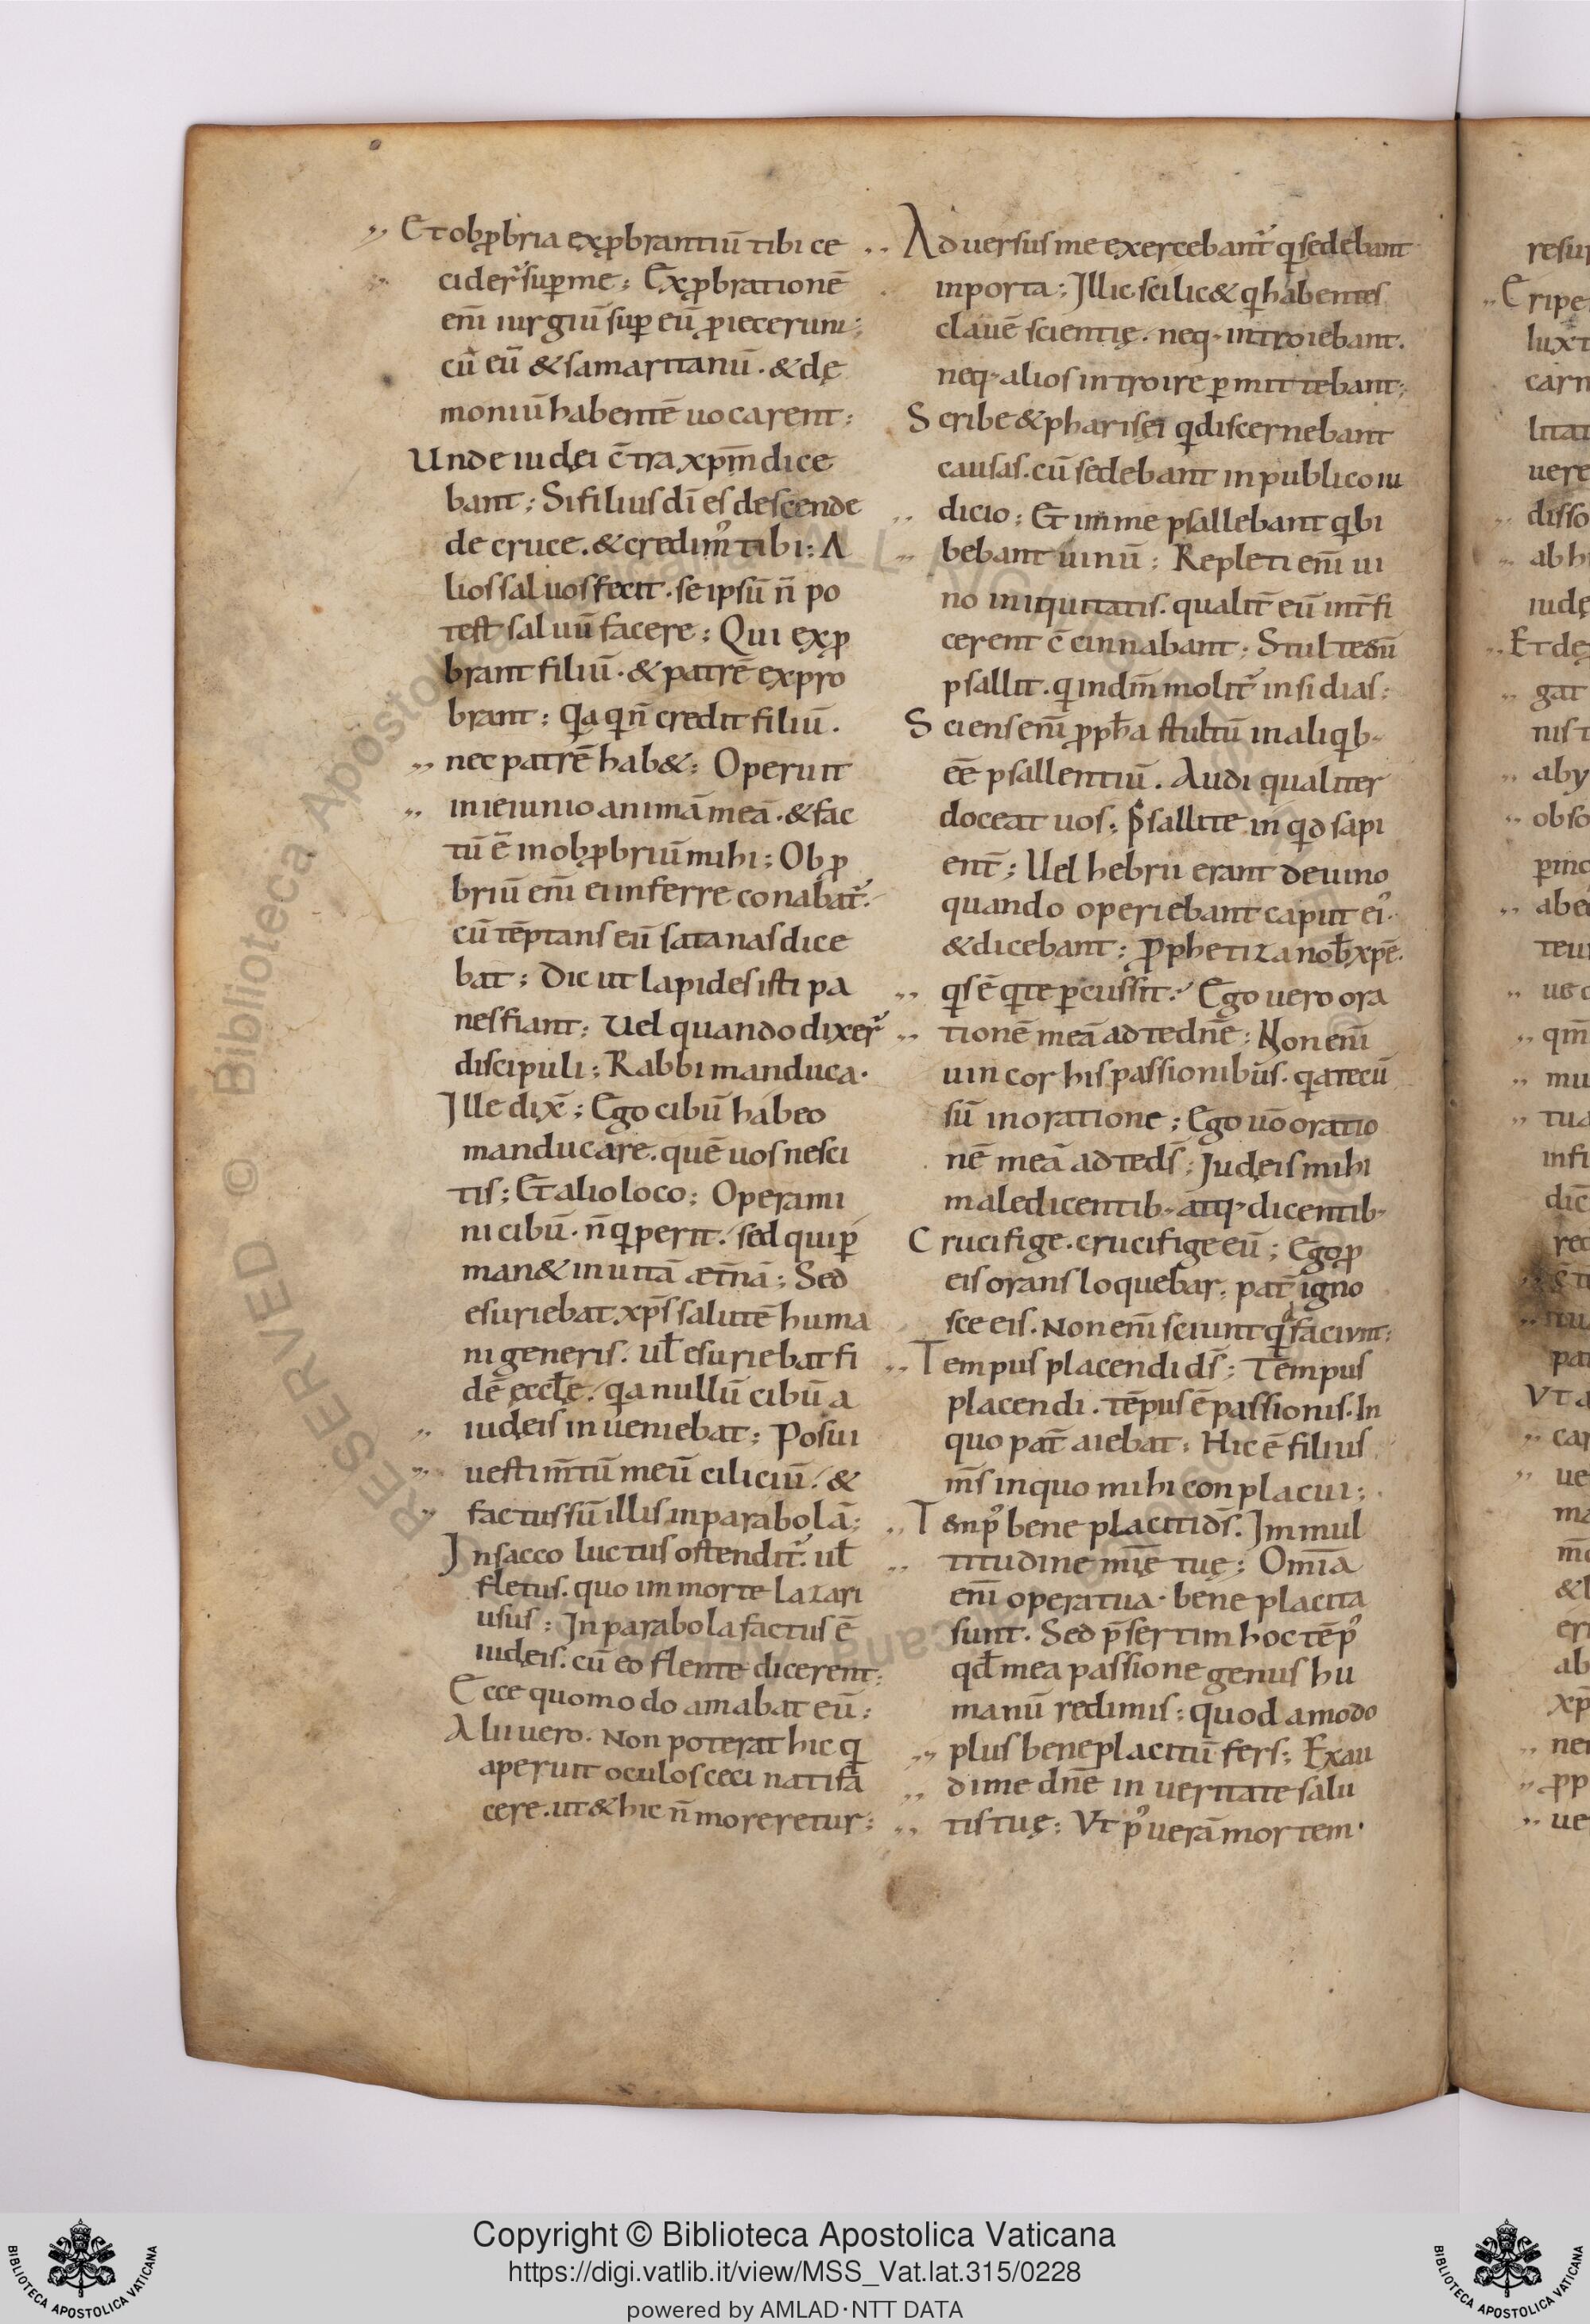 Et obꝓbria exꝓbrantiū tibi ce
cider̃ suꝑ me; Exꝓbrationē
eni̅ iurgiū suꝑ eū ꝓiecerunt;
cū eū & samaritanū. & dę
moniū habentē uocarent;
Unde iudęi c̄tra xp̅m dice
bant; Si filius dī es descende
de cruce. & credim᾽ tibi; A
lios saluos fecit. se ipsū n̄ po
test saluū facere; Qui exꝓ
brant filiū. & patrē expro
brant; Qa q n̄ credit filiū.
nec patrē hab&; Operuit
in ieiunio animā meā. & fac
tū ē in obꝓbriū mihi; Obꝓ
briū eni̅ ei inferre conabat᷑.
cū tēptans eū satanas dice
bat; Dic ut lapides isti pa
nes fiant; Uel quando dixer᷑
discipuli; Rabbi manduca.
Ille dix̄; Ego cibū habeo
manducare. quē uos nesci
tis; Et alio loco; Operami
ni cibū. n̄ q perit. sed qui ꝑ
man& in uitā æt̄nā; Sed
esuriebat xp̅s salutē huma
ni generis. ul̄ esuriebat fi
dē ęccl̄ę. qa nullū cibū a
iudęis inueniebat; Posui
uestim̄tū meū ciliciū. &
factus sū illis in parabolā;
In sacco luctus ostendit᷑. ul̄
fletus. quo im morte lazari
usus; In parabola factus ē
iudęis. cū eo flente dicerent;
Ecce quomodo amabat eū;
Alii uero. Non poterat hic q
aperuit oculos ceci nati fa
cere. ut & hic n̄ moreretur;
Aduersus me exercebant᷑ q sedebant
in porta; Illic scilic& q habentes
clauē scientię. neq; introiebant.
neq; alios introire ꝑmittebant;
Scribe & pharisęi q discernebant
causas. cū sedebant in publico iu
dicio; Et in me psallebant q bi
bebant uinū; Repleti eni̅ ui
no iniquitatis. qualit̄ eū int̄fi
cerent c̄cinnabant; Stulte
psallit. q in dn̅m molit᷑ insidias;
Sciens eni̅ ꝓph̄a stultū in aliqb;
eē psallentiū. Audi qualiter
doceat uos; Psallite in qd sapi
ent̄; Uel hebrii erant de uino
quando operiebant caput ei᾽.
& dicebant; Ꝓphetiza nob̄ xp̅e.
qs ē q te ꝑcussit; Ego uero ora
tionē meā ad te dn̅e; Non eni̅
uincor his passionibus. qa tecū
sū in oratione; Ego uō oratio
nē meā ad te ds̅; Iudęis mihi
maledicentib; atq; dicentib;
Crucifige. crucifige eū; Ego ꝓ
eis orans loquebar; pat̄ igno
sce eis. Non eni̅ sciunt qd faciunt;
Tempus placendi ds̅; Tempus
placendi. tēpus ē passionis. In
quo pat̄ aiebat; Hic ē filius
m̄s in quo mihi conplacui;
Temp᾽ bene placiti ds̅. Im mul
titudine mi̅ę tuę; Omi̅a
eni̅ opera tua. bene placita
sunt. Sed p̄sertim hoc tēp᾽
qd̄ mea passione genus hu
manū redimis; quod amodo
plus beneplacitū fers; Exau
di me dn̅e in ueritate salu
tis tuę; Ut p᾽ uerā mortem.
Copyright © Biblioteca Apostolica Vaticana
https://digi.vatlib.it/view/MSS_Vat.lat.315/0228
powered by AMLAD·NTT DATA
BIBLIOTECA APOSTOLICA VATICANA
BIBLIOTECA APOSTOLICA VATICANA